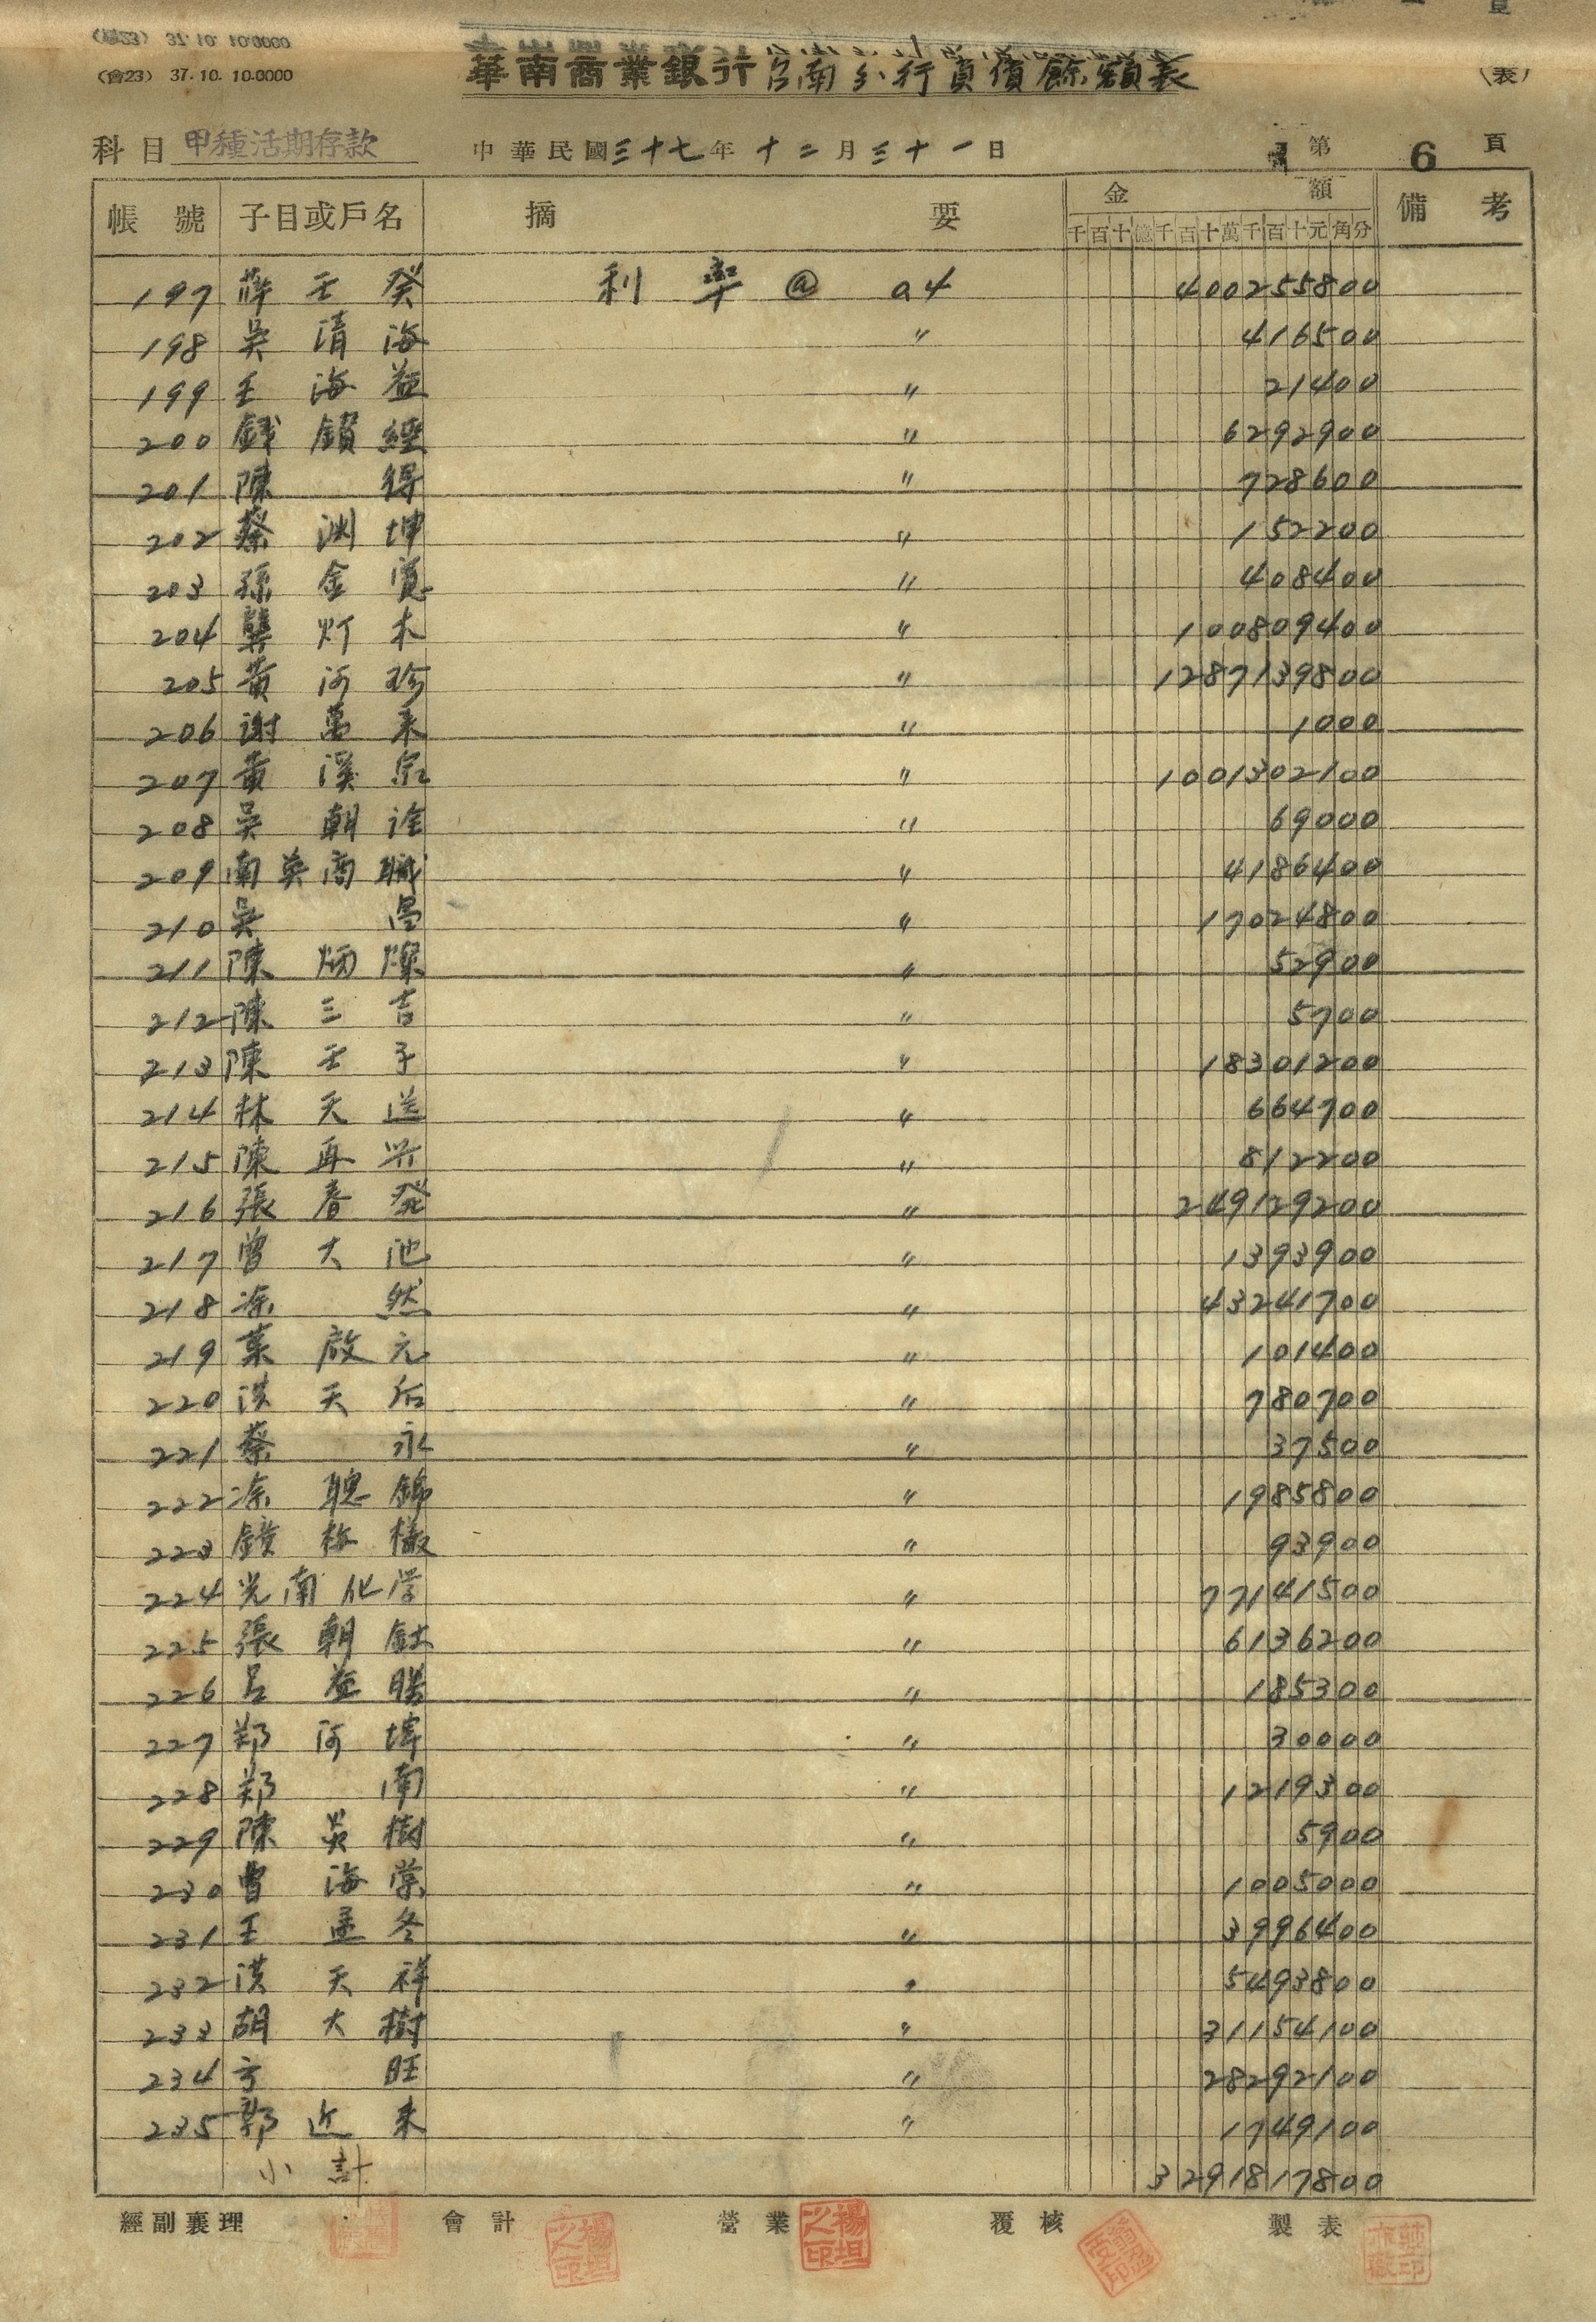 (會23) 37.10.10.0000
(會23) 37.10.10.0000
華南商業銀行台南分行負債餘額表
(表)
科目 甲種活期存款 中華民國三十七年十二月三十一日 第 6 頁
帳號 子目或戶名 摘要 金額 備考
千百十億千百十萬千百十元角分
197 薛壬癸 利率@ a4 4002 55800
198 吳清海 〃 416500
199 王海益 〃 21400
200 錢鎖經 〃 6292900
201 陳得 〃 728600
202 蔡渊坤 〃 152200
203 孫金寬 〃 408400
204 龔灯木 〃 100809400
205 黃河珍 〃 1287139800
206 謝萬来 〃 1000
207 黃溪泉 〃 1001302100
208 吳朝淦 〃 69000
209 南英商職 〃 4186400
210 吳昌 〃 17024800
211 陳炳燦 〃 52900
212 陳三吉 〃 5700
213 陳壬子 〃 18301200
214 林天送 〃 664700
215 陳再兴 〃 812200
216 張春発 〃 249129200
217 曾大池 〃 1393900
218 凃然 〃 43241700
219 葉啟元 〃 101400
220 洪天后 〃 780700
221 蔡永 〃 37500
222 凃聰錦 〃 1985800
223 〃 93900
224 光南化学 〃 77141500
225 張朝 〃 6136200
226 呂益勝 〃 185300
227 郑河 〃 30000
228 郑南 〃 1219300
229 陳炎樹 〃 5900
230 曾海棠 〃 1005000
231 王孟冬 〃 3996400
232 洪天祥 〃 5493800
233 胡大樹 〃 31154100
234 方旺 〃 28292100
235 郭近来 〃 1749100
小計 3291817800
經副襄理 會計 營業 覆核 製表
楊坦之印
楊坦之印